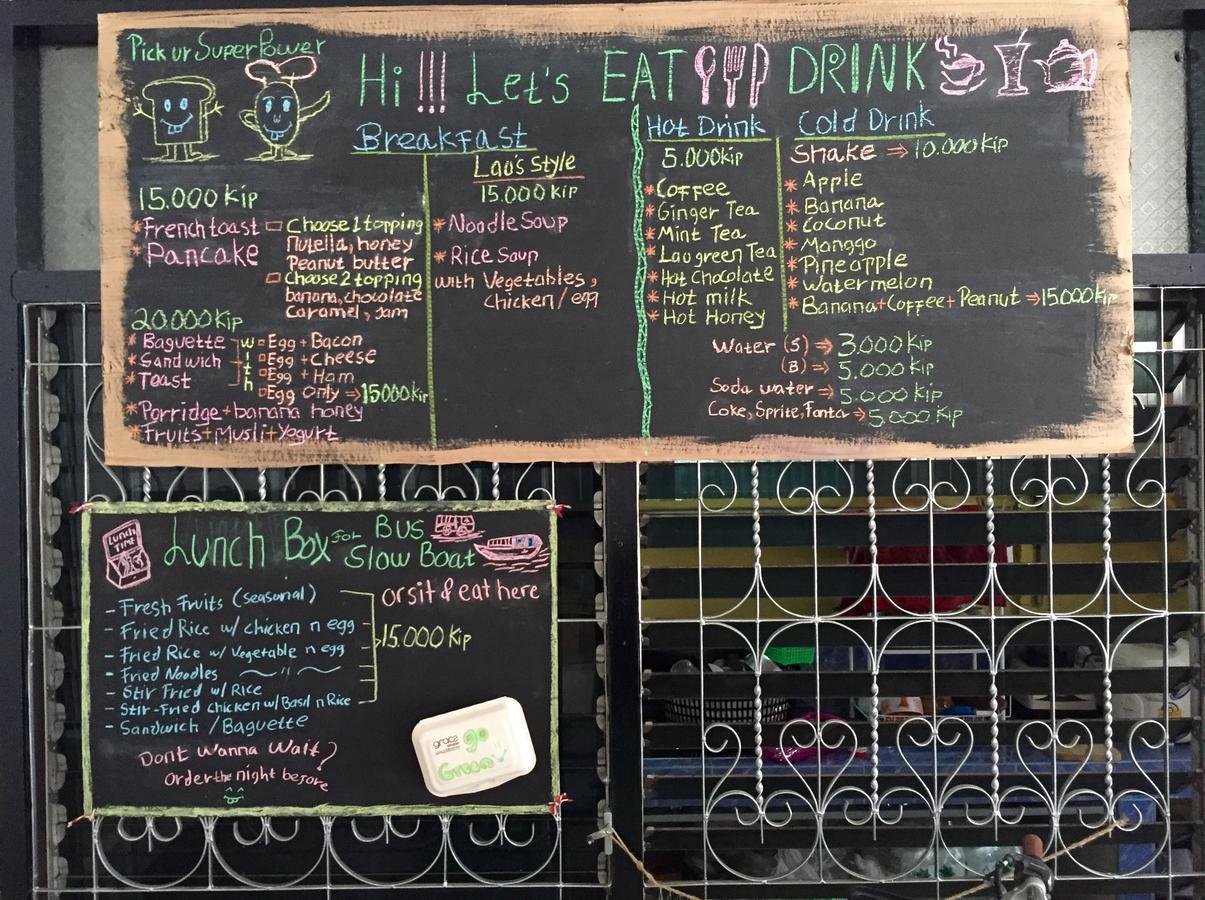 Pick ur SuperPower
Hi !!! Let's EAT DRINK
Breakfast
15.000 Kip
* French toast
* Pancake
□ Choose 1 topping
Nutella, honey
Peanut butter
□ Choose 2 topping
banana, chocolate
Caramel, Jam
20.000 Kip
* Baguette
* Sandwich
* Toast
with
□ Egg + Bacon
□ Egg + Cheese
□ Egg + Ham
□ Egg Only ⇒ 15000 Kip
* Porridge + banana honey
* Fruits + Musli + Yogurt
Lao's Style
15.000 Kip
* Noodle Soup
* Rice Soup
with Vegetables,
Chicken / egg
Hot Drink
5.000 Kip
* Coffee
* Ginger Tea
* Mint Tea
* Lao green Tea
* Hot Chocolate
* Hot milk
* Hot Honey
Cold Drink
Shake ⇒ 10.000 Kip
* Apple
* Banana
* Coconut
* Manggo
* Pineapple
* Watermelon
* Banana + Coffee + Peanut ⇒ 15000 Kip
Water (S) ⇒ 3.000 Kip
(B) ⇒ 5.000 Kip
Soda water ⇒ 5.000 Kip
Coke, Sprite, Fanta ⇒ 5.000 Kip
LUNCH
TIME
Lunch Box For Bus
Slow Boat
or sit & eat here
- Fresh Fruits (seasonal)
- Fried Rice w/ chicken n egg
- Fried Rice w/ Vegetable n egg
- Fried Noodles ~ " ~
- Stir Fried w/ Rice
- Stir-Fried chicken w/ Basil n Rice
- Sandwich / Baguette
15.000 Kip
Dont Wanna Wait?
Order the night before
gracz
go
Green